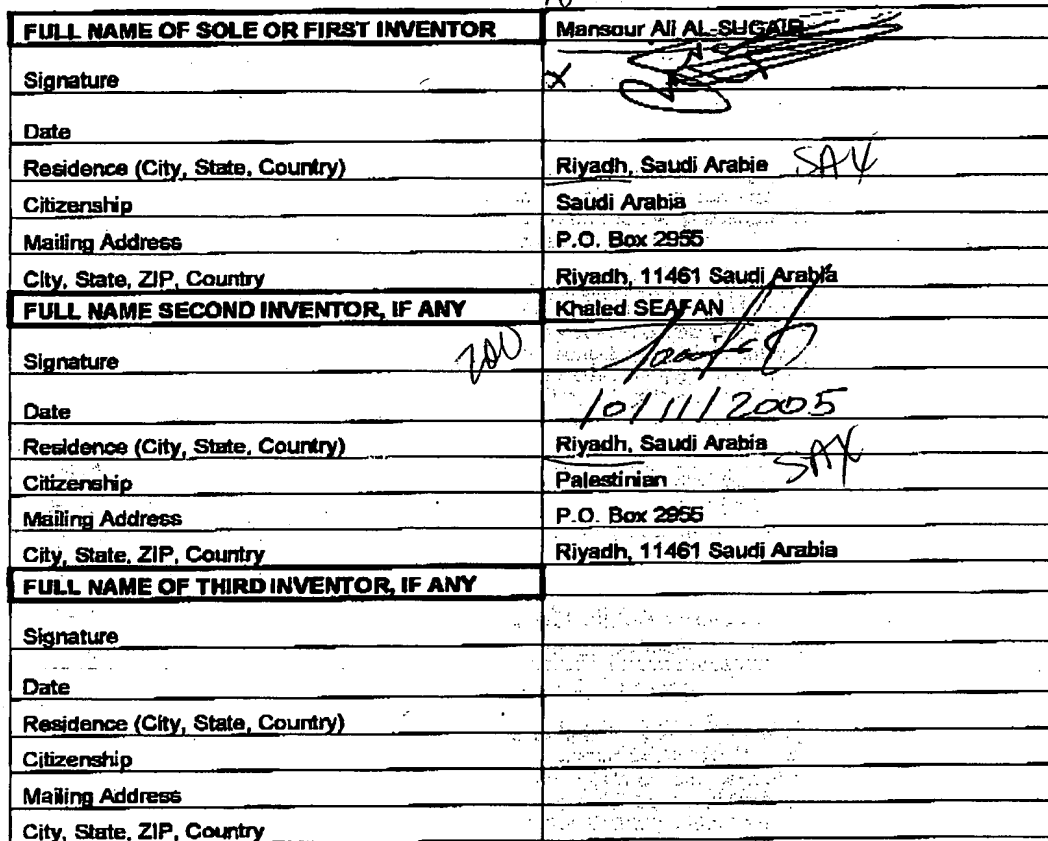 FULL NAME OF SOLE OR FIRST INVENTOR Mansour Ali AL-SUGAIR
Signature X
Date
Residence (City, State, Country) Riyadh, Saudi Arabia
Citizenship Saudi Arabia
Mailing Address P.O. Box 2955
City, State, ZIP, Country Riyadh, 11461 Saudi Arabia
FULL NAME SECOND INVENTOR, IF ANY Khaled SEAFAN
Signature 200
Date 10/11/2005
Residence (City, State, Country) Riyadh, Saudi Arabia SAX
Citizenship Palestinian
Mailing Address P.O. Box 2955
City, State, ZIP, Country Riyadh, 11461 Saudi Arabia
FULL NAME OF THIRD INVENTOR, IF ANY
Signature
Date
Residence (City, State, Country)
Citizenship
Mailing Address
City, State, ZIP, Country